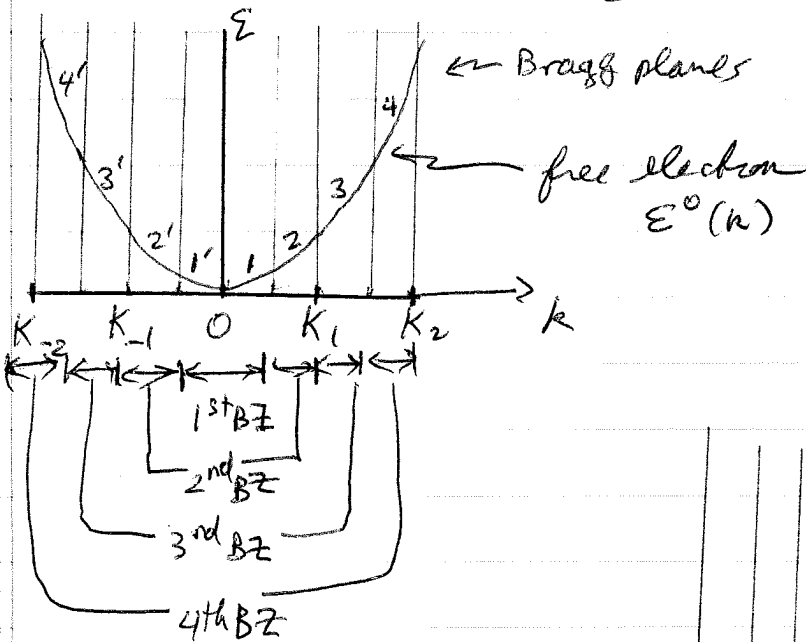 ε
4' 4 ← Bragg planes
3' 3 free electron
ε⁰(k)
2' 1' 1 2
K₋₂ K₋₁ 0 K₁ K₂ k
1st BZ
2nd BZ
3rd BZ
4th BZ